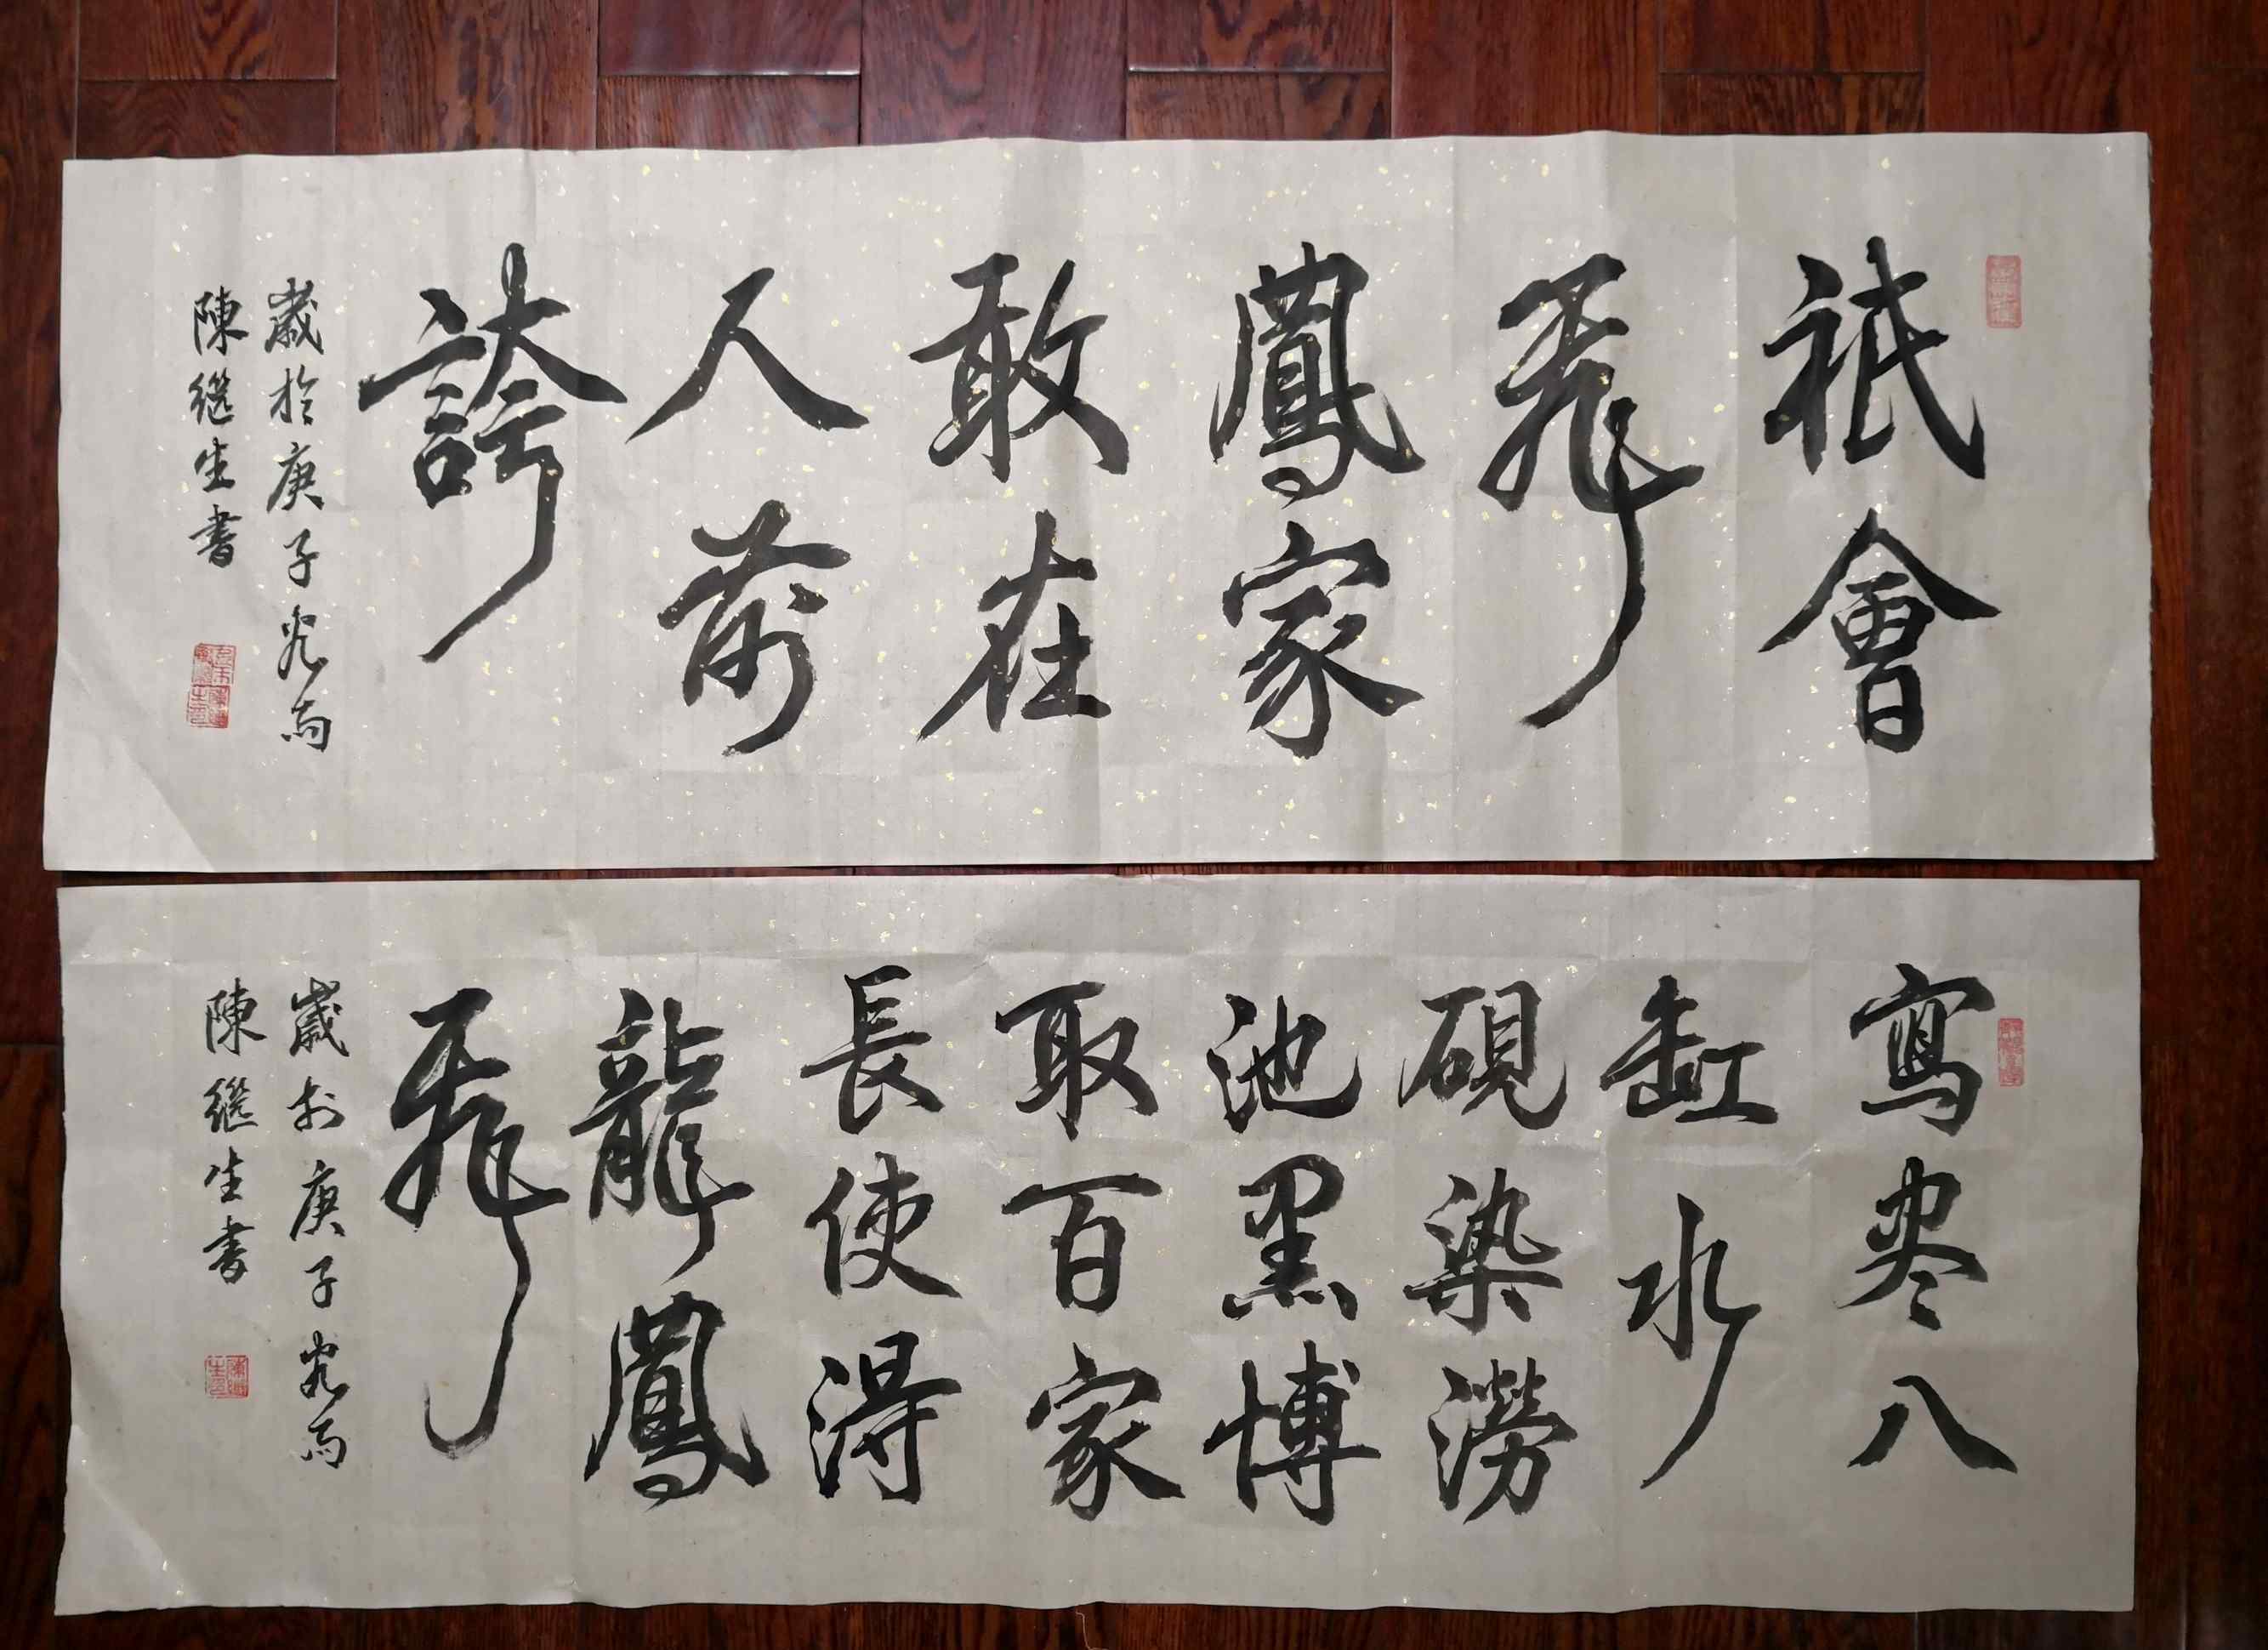 祇會
飛
鳳家
敢在
人前
誇
歲於庚子
陳继生書
寫尽八
缸水
硯染澇
池黑博
取百家
長使得
龍鳳
飛
歲於庚子
陳继生書